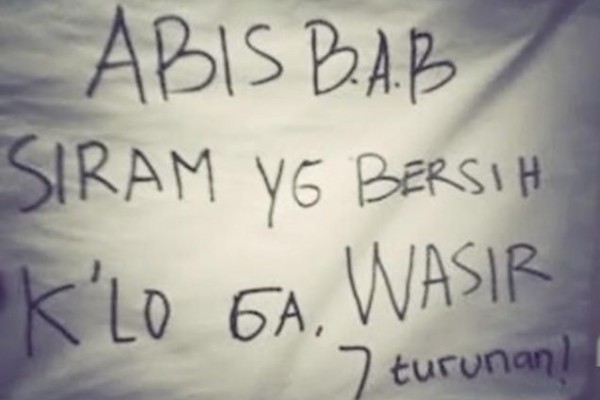 ABIS B.A.B
SIRAM YG BERSIH
K'LO GA, WASIR
7 turunan!